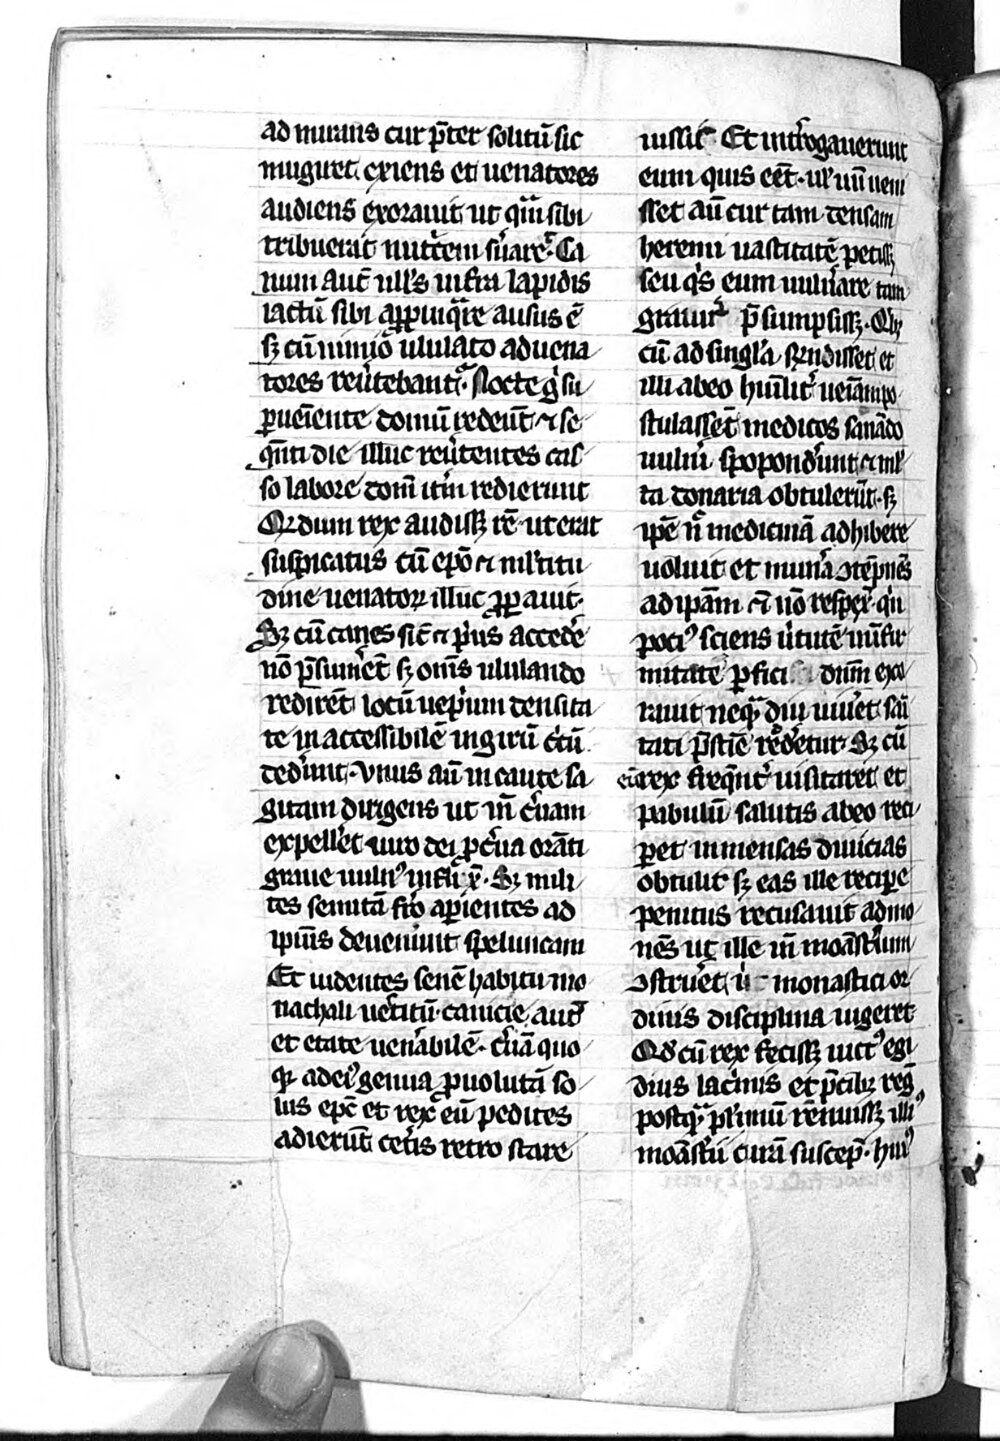 ad mirans cur p̄ter solitū sic
mugiret. exiens et uenatores
audiens exorauit ut q̄m sibi
tribuerat nutⁱcem s̾uaret. Ca
num aut̄ ullꝰs infra lapidis
iactū sibi ap̄pinq̄re ausus ē
sꝫ cū nimio ululato ad uena
tores reu̾tebant᷑. Nocte g̊ su
ꝑueniente domū redeūt ⁊ se
q̄nti die illuc reu̾tentes cas
so labore domū itm̄ redierunt
Qd dum rex audissꝫ rē ut erat
suspicatus cū ep̄o ⁊ ml̾titu
dine uenatoꝝ illuc ꝓꝑauit.
Sꝫ cū canes sic̄ ⁊ pⁱus accede̾
nō p̄sumer̄et sꝫ om̄s ululando
redirēt locū uep̾ium densita
te in accessibilē in girū cⁱcū
dederunt. Vnus aū incaute sa
gittam dirigens ut īn c̾uam
expelleret uiro dei ꝓ c̾ua orāti
graue uulnꝰ inflixͭ. Sꝫ mili
tes semitā ferro aꝑientes ad
ipīus deuenīunt speluncam
Et uidentes senē habitu mo
nachali uestitū. canicie aud̾
et etate uen̾abilē. c̾uā quo
qꝫ ad eiꝰ genua ꝓuolutā so
lus epc̄ et rex eū pedites
adierūt cet̾is retro stare
iussis. Et int̾rogauerunt
eum quis eēt. ul̾ un̄ ueni
sset aū cur tam densam
heremi uastitatē petissꝫ
seu qⁱs eum uuln̾are tam
grauit᷑ p̄sumpsissꝫ. Qibꝫ
cū ad singl̾a rn̄disset et
illi ab eo humilit̾ ueniam po
stulassēt medicos sanādo
uuln̾i spoponderunt ⁊ ml̾
ta donaria obtulerūt. sꝫ
ip̄e nͦ medicinā adhibere
uoluit et mun̾a ꝯtēpnēs
ad ip̄am ⁊ nō respexͭ. q̄n
pociꝰ sciens u̾tutē in īfir
mitate ꝑfici dnm̄ exo
rauit ne qͣmdiu uiu̾et san̄
tati p̄stīe redderetur. Sꝫ cū
eū rex freq̄nt̾ uisitaret et
pabulū salutis ab eo reci
ꝑet inmensas diuicias
obtulit sꝫ eas ille reciꝑe
penitus recusauit admo
nēs ut ille īn monast̾ium
ꝯstru̾et ubi monastici or
dinis disciplina uigeret
Qd cū rex fecissꝫ uictꝰ egi
dius lac̾mis et p̄cibꝫ reḡ
postqͣm pl̾imū renuissꝫ illiꝰ
monast̾ii curā suscepͭ. huiꝰ